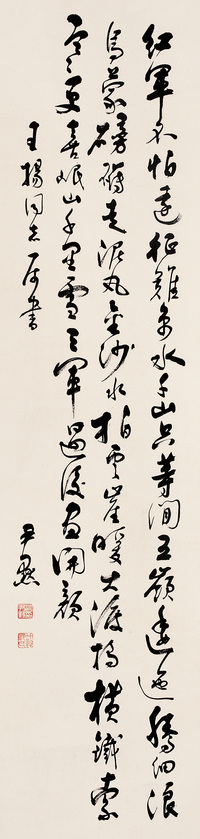 紅軍不怕遠征難万水千山只等閒五嶺逶迤騰細浪
烏蒙磅礴走泥丸金沙水拍雲崖暖大渡橋橫鐵索
寒更喜岷山千里雪三軍過後盡開顏
王揚同志屬書
尹默